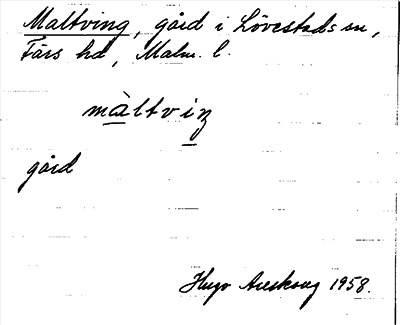 Maltving, gård i Lövestads sn,
Färs hd, Malm. l.
màltviŋ
gård
Hugo Areskoug 1958.